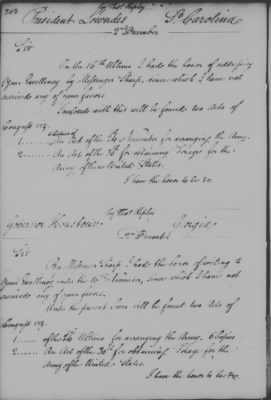 308
by Thos Ripley
President Lowndes So. Carolina
2d December
Sir
On the 16th Ultimo I had the honor of addressing
Your Excellency by Messenger Sharp, since which I have not
received any of your favors.
Enclosed with this will be found two Acts of
Congress viz
6 Copies of
1 An Act of the 24 November for arranging the Army
2 An Act of the 30th for obtaining Forage for the
Army of these United States.
I have the honor to be &c
by Thos Ripley
Governor Houstoun Georgia
2d December
Sir
By Messr Sharp I had the honor of writing to
Your Excellency under the 16th November, since which I have not
received any of your favors.
Under the present Cover will be found two Acts of
Congress viz
1 of the 24 Ultimo for arranging the Army. 6 Copies
2 An Act of the 30th for obtaining Forage for the
Army of the United States.
I have the honor to be &c